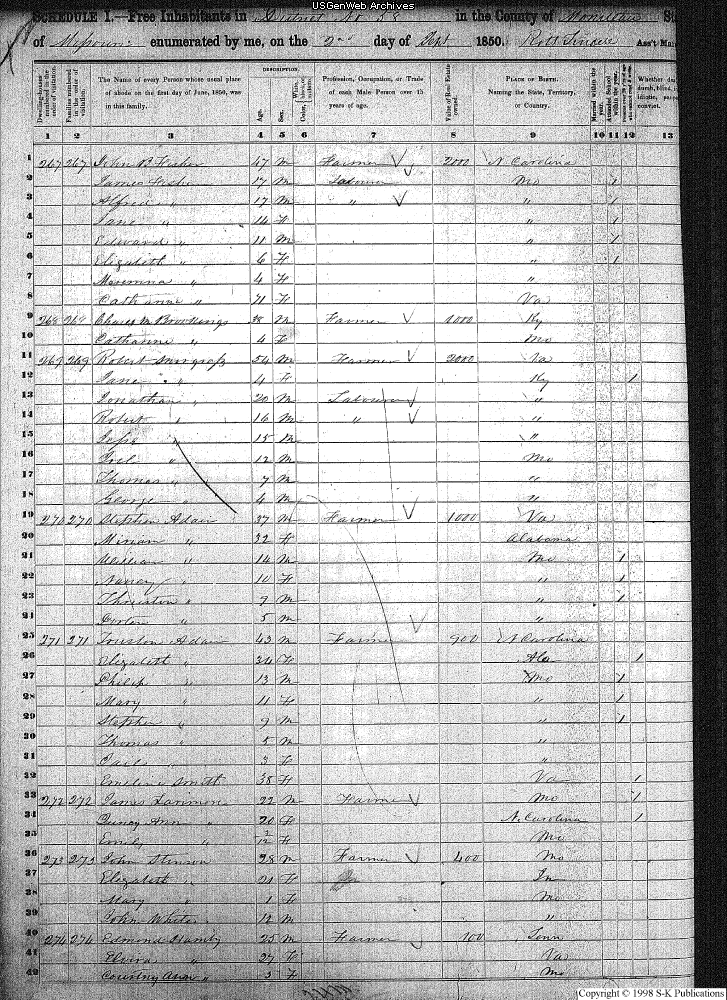 USGenWeb Archives
SCHEDULE I.—Free Inhabitants in District No 58 in the County of Moniteau
of Missouri enumerated by me, on the 2nd day of Sept 1850. Ass't Mar
Dwelling-houses numbered in the order of visitation.
Families numbered in the order of visitation.
The Name of every Person whose usual place of abode on the first day of June, 1850, was in this family.
DESCRIPTION.
Age.
Sex.
Color, White, black, or mulatto.
Profession, Occupation, or Trade of each Male Person over 15 years of age.
Value of Real Estate owned.
PLACE OF BIRTH. Naming the State, Territory, or Country.
Married within the year.
Attended School within the year.
Whether
1 2 3 4 5 6 7 8 9 10 11 12 13
1 267 267 John B Fisher 47 M Farmer 2000 N Carolina
2 James Fisher 17 M Labourer Mo
3 Alfred " 17 M " " 1
4 Jane " 14 F " 1
5 Edward " 11 M " 1
6 Elizabeth " 6 F " 1
7 " 4 F "
8 Catharine " 71 F Va
9 268 268 Brookings 38 M Farmer 1000 Ky
10 Catharine " 4 F Mo
11 269 269 Robert Snorgrass 54 M Farmer 2000 Va
12 Jane " 4 F Ky 1
13 Jonathan " 20 M Labourer "
14 Robert " 16 M " "
15 Jesse " 15 M "
16 Joel " 12 M Mo
17 Thomas " 7 M "
18 George " 4 M "
19 270 270 Stephen Adair 37 M Farmer 1000 Va
20 Miriam " 32 F Alabama
21 William " 14 M Mo 1
22 Nancy " 10 F " 1
23 Thurston " 7 M " 1
24 " 5 M "
25 271 271 Adair 43 M Farmer 900 N Carolina
26 Elizabeth " 34 F Ala 1
27 Philip " 13 M Mo 1
28 Mary " 11 F " 1
29 Stephen " 9 M " 1
30 Thomas " 5 M "
31 " 3 F "
32 Emeline Smith 38 F Va 1
33 272 272 James Larimore 22 M Farmer Mo 1
34 Quincy Ann " 20 F N Carolina 1
35 Emily " 2/12 F Mo
36 273 273 John Stinson 28 M Farmer 400 Mo
37 Elizabeth " 21 F In
38 Mary " 1 F Mo
39 John White 12 M "
40 274 274 Edmond Hamby 25 M Farmer 100 Tenn
41 Elvira " 27 F Va
42 Courtny Ann " 3 F Mo
Copyright © 1998 S-K Publications